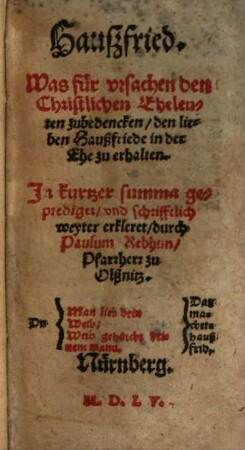 Haußfried.
Was für vrsachen den
Christlichen Eheleu-
ten zubedencken / den lie-
ben Haußfriede in der
Ehe zu erhalten.
In kurtzer summa ge-
prediget / vnd schrifftlich
weyter erkleret / durch
Paulum Rebhun /
Pfarrherr zu
Olßnitz.
Du
Man lieb dein
Weib /
Weib gehorch dei-
nem mann.
Das
ma-
chet
hauß-
frid.
Nürnberg.
M. D. L V.